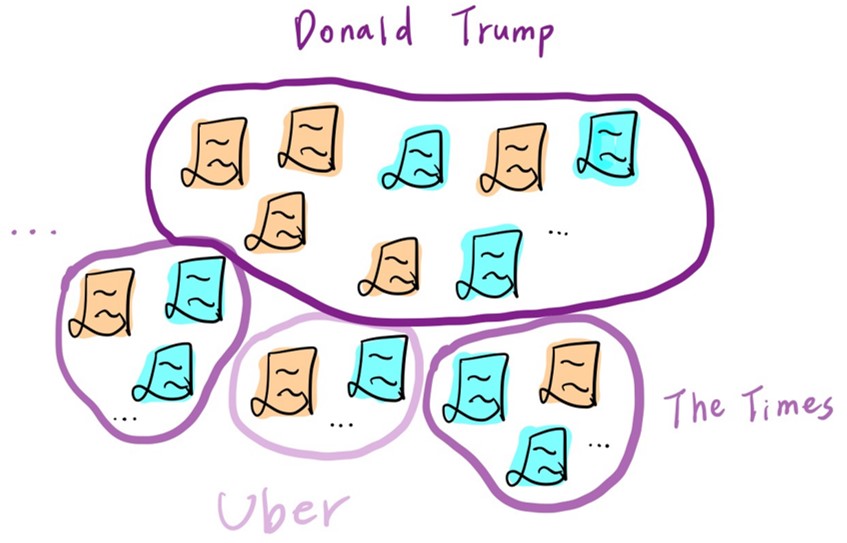 Donald Trump
...
...
...
...
...
The Times
Uber